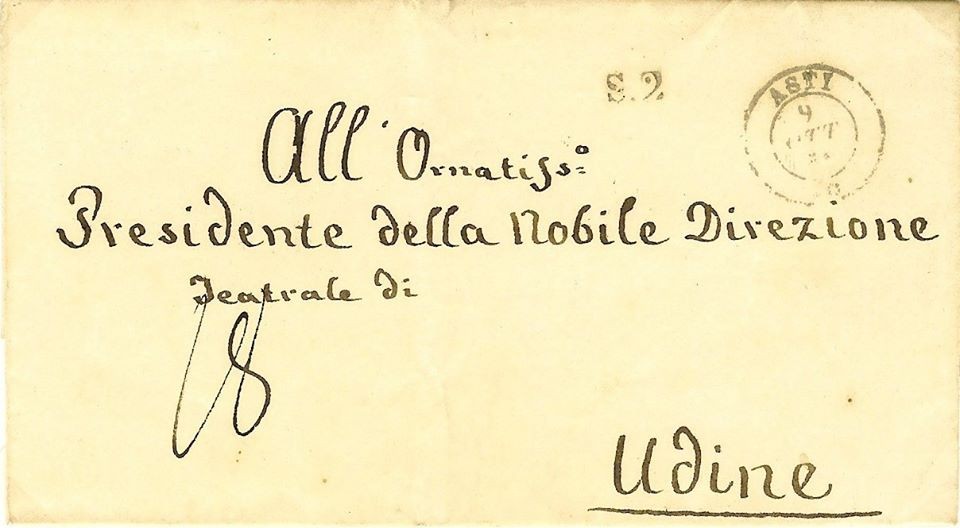 S.2
ASTI
9
OTT
All' Ornatifs:º
Presidente della Nobile Direzione
Teatrale di
18
Udine